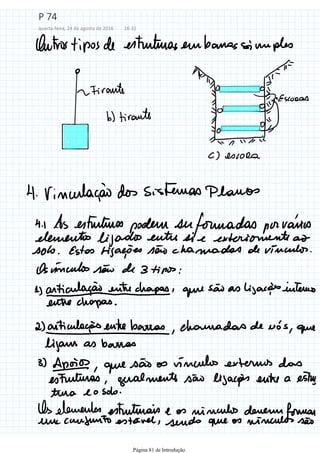 P 74
quarta-feira, 24 de agosto de 2016 16:31
Outros tipos de estruturas em barras simples
tirante
Escoras
b) tirante
c) escora
4. Vinculação dos Sistemas Planos
4.1 As estruturas podem ser formadas por vários
elementos ligados entre si e exteriormente ao
solo. Estas ligações são chamadas de vínculos.
Os vínculos são de 3 tipos:
1) articulação entre chapas, que são as ligações internas
entre chapas.
2) articulação entre barras, chamadas de nós, que
ligam as barras
3) Apoios, que são os vínculos externos das
estruturas, geralmente são ligação entre a estru
tura e o solo.
Os elementos estruturais e os vínculos devem formar
um conjunto estável, sendo que os vínculos são
Página 81 de Introdução